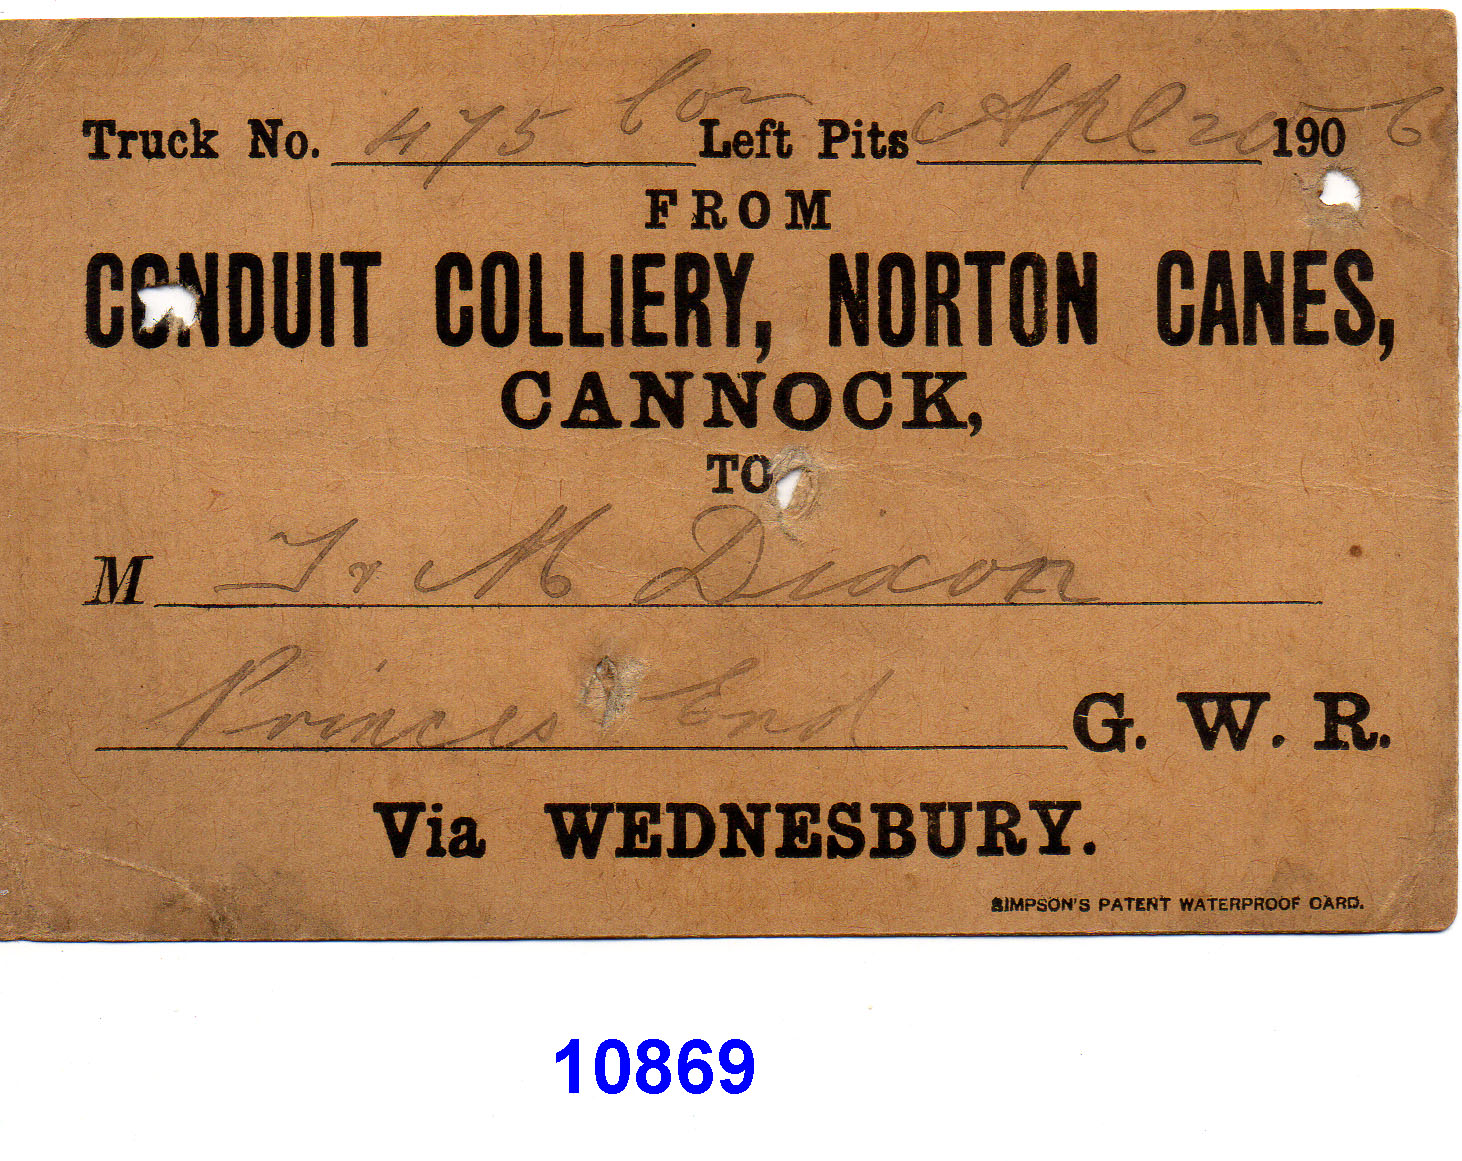 Truck No. 475 Con Left Pits Apl 20 1906
FROM
CONDUIT COLLIERY, NORTON CANES,
CANNOCK,
TO
M Dixon
Princes End G. W. R.
Via WEDNESBURY.
SIMPSON'S PATENT WATERPROOF CARD.
10869